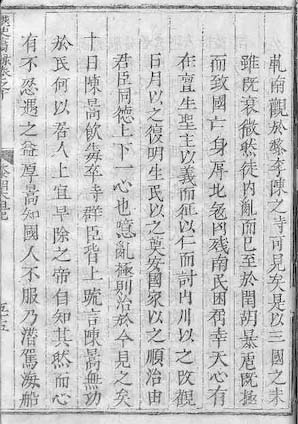 南觀於黎李陳之寺可見矣是以三國之末
雖既衰微然徒内亂而已至於閏胡暴虐既極
而致國亡身辱北冦凶残南民困窮幸天心有
在亶生聖主以義而征以仁而討山川以之改觀
日月以之復明生民以之奠安國家以之順治由
君臣同德上下一心也噫亂極則治於今見之矣
十日陳暠飲毒卒寺群臣皆上疏言陳暠無功
於民何以居人上宜早除之帝自知其然而心
有不忍遇之益厚暠知國人不服乃潜駕海船